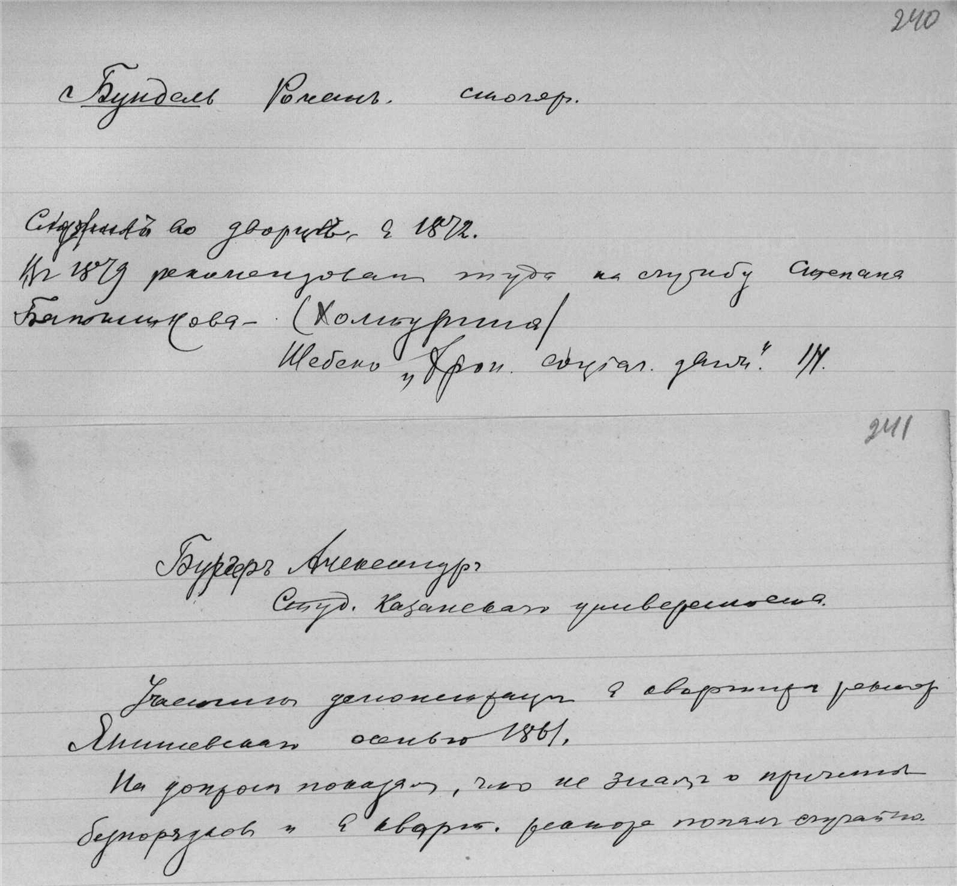 240
Бундель Роман. столяр.
Служилъ во дворцѣ, с 1872.
В 1879 рекомендовал туда на службу Степана
Батышкова – (Халтурина)
Шебеко „Хрон. соціал. движ." 111.
241
Бургеръ Александръ
Студ. Казанскаго университета.
Участник демонстрации в квартире ректора
Янишевскаго осенью 1861.
На допросе показал, что не знает о причинах
безпорядков и в кварт. ректора попал случайно.